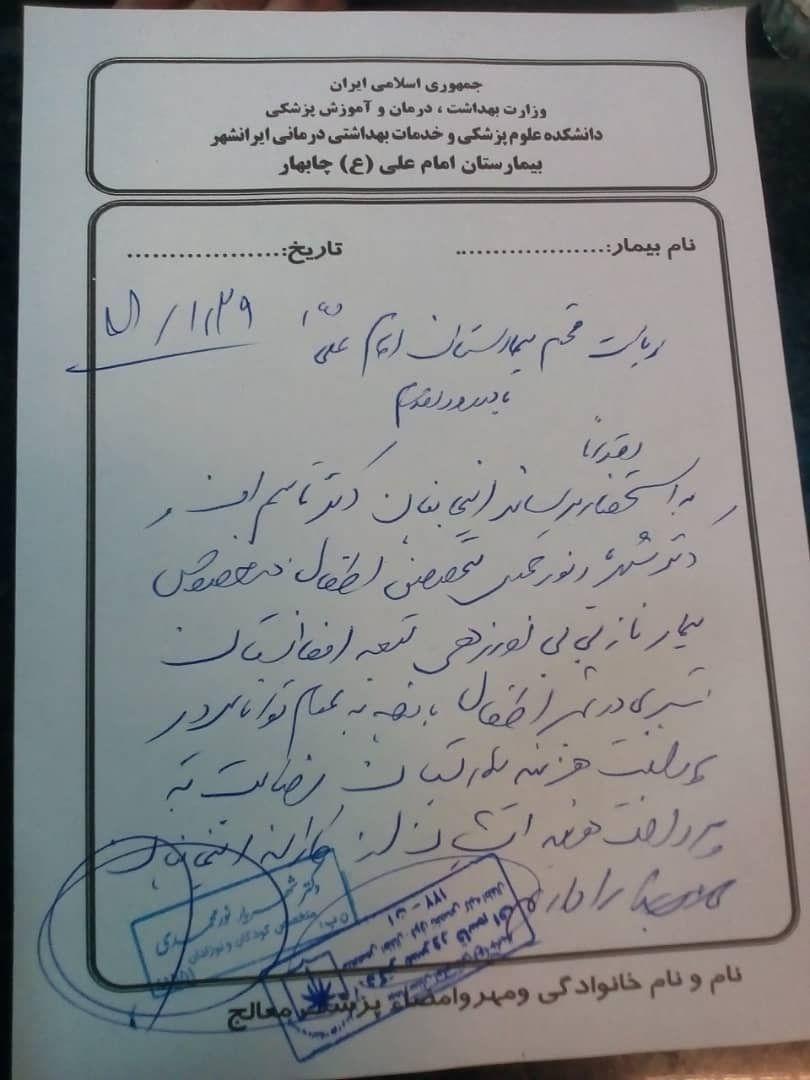 جمهوری اسلامی ایران
وزارت بهداشت ، درمان و آموزش پزشکی
دانشکده علوم پزشکی و خدمات بهداشتی درمانی ایرانشهر
بیمارستان امام علی (ع) چابهار
نام بیمار:.................... تاریخ:...................
ریاست محترم بیمارستان امام علی (ع)
با درود و تقدیم
به استحضار میرساند اینجانبان دکتر قاسم اف و
دکتر شهریار نورمحمدی متخصص اطفال در خصوص
بیمار نازبی بی نورزهی تبعه افغانستان
بستری در اطفال با توجه به عدم توانایی در
پرداخت هزینه رضایت به
پرداخت هزینه ایشان از کارانه اینجانبان
را داریم
دکتر شهریار نورمحمدی
متخصص کودکان و نوزادان
نام و نام خانوادگی ومهر وامضاء پزشک معالج